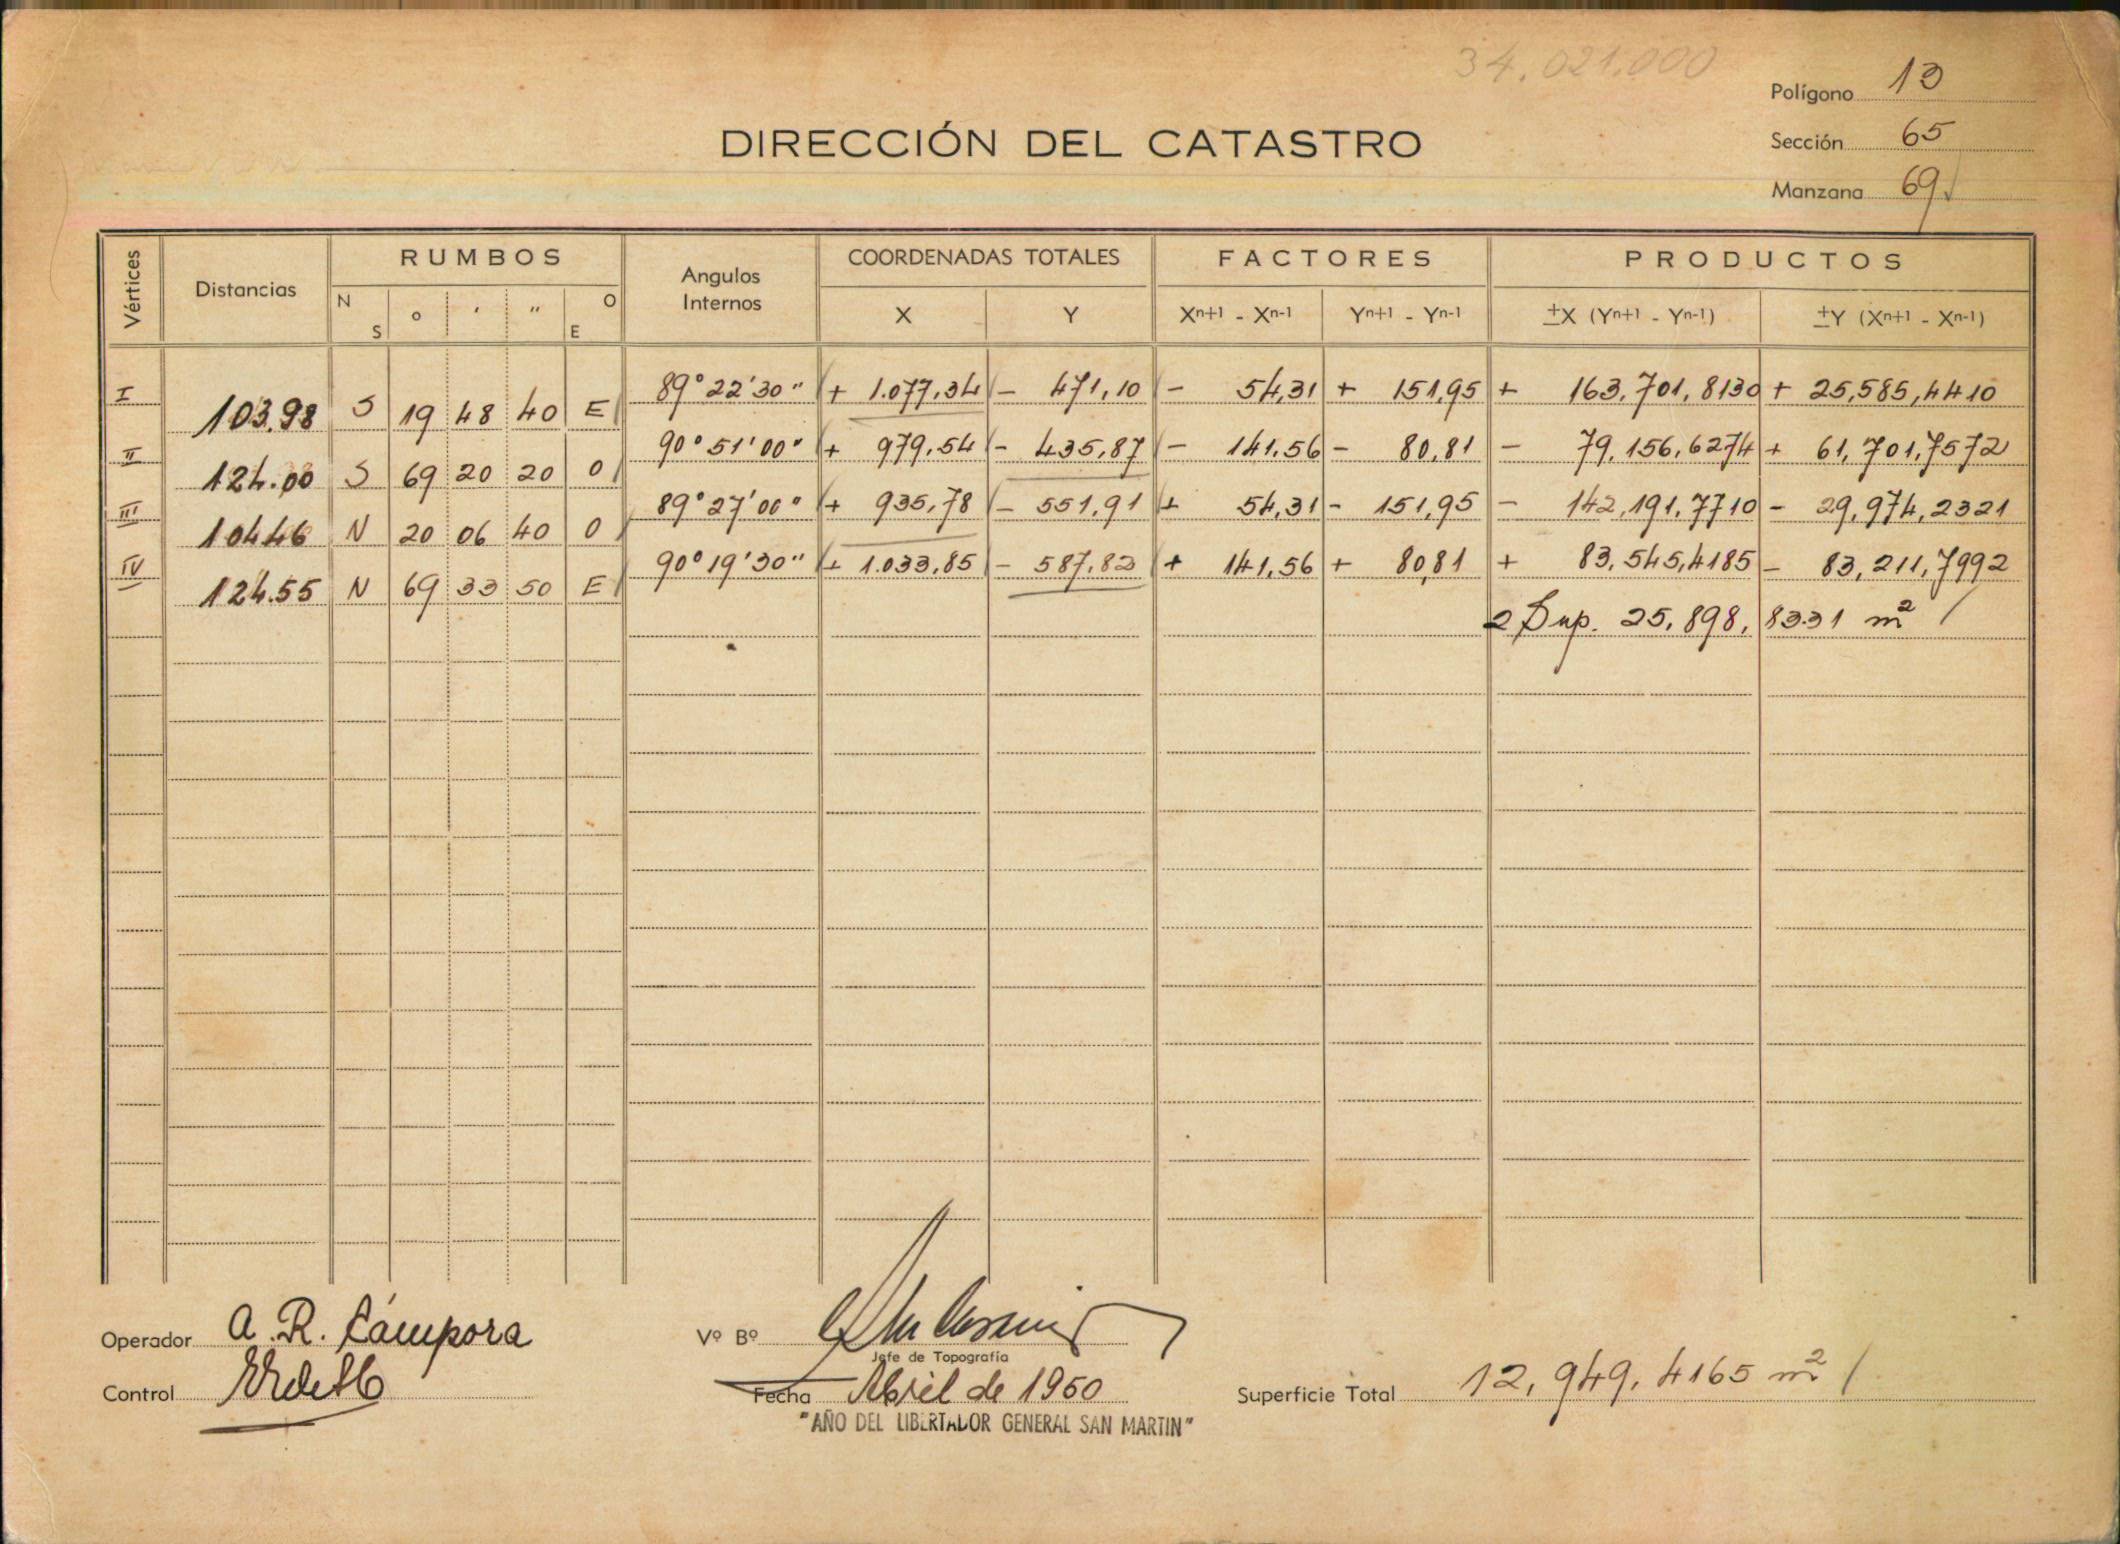 34.021.000
Polígono 13
DIRECCIÓN DEL CATASTRO
Sección 65
Manzana 69
Vértices Distancias RUMBOS Angulos Internos COORDENADAS TOTALES FACTORES PRODUCTOS
N S o ' " O E X Y Xn+1 - Xn-1 Yn+1 - Yn-1 ±X (Yn+1 - Yn-1) ±Y (Xn+1 - Xn-1)
I 103.98 S 19 48 40 E 89° 22' 30" + 1.077,34 - 471,10 - 54,31 + 151,95 + 163,701,8130 + 25,585,4410
II 124.00 S 69 20 20 O 90° 51' 00" + 979,54 - 435,87 - 141,56 - 80,81 - 79,156,6274 + 61,701,7572
III 104.46 N 20 06 40 O 89° 27' 00" + 935,78 - 551,91 + 54,31 - 151,95 - 142,191,7710 - 29,974,2321
IV 124.55 N 69 33 50 E 90° 19' 30" + 1.033,85 - 587,82 + 141,56 + 80,81 + 83,545,4185 - 83,211,7992
2 Sup. 25,898,8331 m²
Operador A. R. Cámpora
Vº Bº
Jefe de Topografía
Control
Fecha Abril de 1950
Superficie Total 12,949,4165 m²
"AÑO DEL LIBERTADOR GENERAL SAN MARTIN"